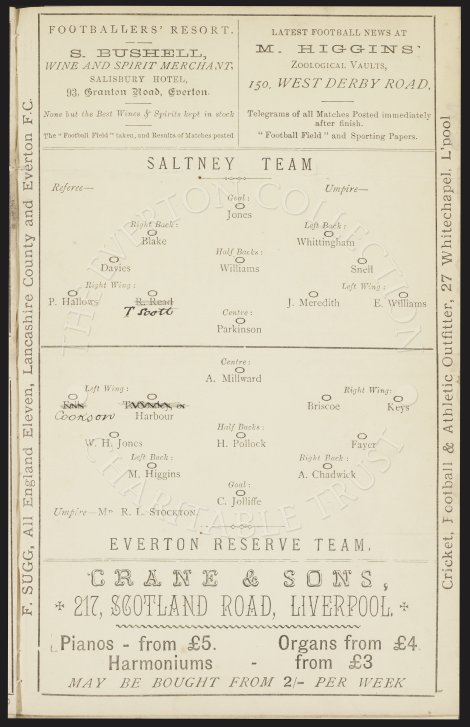 FOOTBALLERS' RESORT.
S. BUSHELL,
WINE AND SPIRIT MERCHANT,
SALISBURY HOTEL,
93, Granton Road, Everton.
None but the Best Wines & Spirits kept in stock
The "Football Field" taken, and Results of Matches posted
LATEST FOOTBALL NEWS AT
M. HIGGINS'
ZOOLOGICAL VAULTS,
150, WEST DERBY ROAD.
Telegrams of all Matches Posted immediately
after finish.
"Football Field" and Sporting Papers.
F. SUGG, All England Eleven, Lancashire County and Everton F.C.
SALTNEY TEAM
Referee—
Umpire—
Goal:
Jones
Right Back:
Blake
Left Back:
Whittingham
Half Backs:
Davies
Williams
Snell
Right Wing:
Left Wing:
P. Hallows
R. Read
T Scott
J. Meredith
E. Williams
Centre:
Parkinson
Centre:
A. Millward
Left Wing:
Right Wing:
Cookson
Harbour
Briscoe
Keys
Half Backs:
W. H. Jones
H. Pollock
Fayer
Left Back:
Right Back:
M. Higgins
A. Chadwick
Goal:
C. Jolliffe
Umpire—MR. R. L. STOCKTON.
EVERTON RESERVE TEAM.
CRANE & SONS,
217, SCOTLAND ROAD, LIVERPOOL.
Pianos - from £5. Organs from £4
Harmoniums - from £3
MAY BE BOUGHT FROM 2/- PER WEEK
Cricket, Football & Athletic Outfitter, 27 Whitechapel, L'pool
THE EVERTON COLLECTION
CHARITABLE TRUST